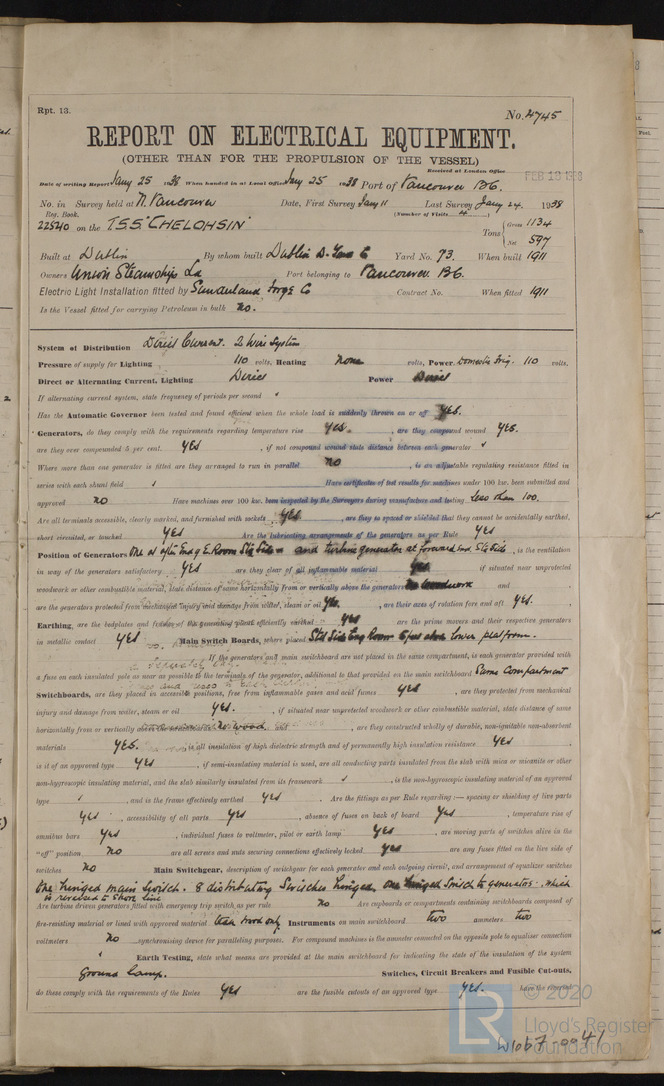 Rpt. 13.
No. 4745
REPORT ON ELECTRICAL EQUIPMENT.
(OTHER THAN FOR THE PROPULSION OF THE VESSEL)
Received at London Office FEB 18 1938
Date of writing Report Jany 25 1938 When handed in at Local Office Jany 25 1938 Port of Vancouver B.C.
No. in Survey held at N. Vancouver Date, First Survey Jany 11 Last Survey Jany 24. 1938
Reg. Book. (Number of Visits 4)
22540 on the T.S.S. "CHELOHSIN" Tons { Gross 1134
Net 597
Built at Dublin By whom built Dublin D. Yard Co Yard No. 73. When built 1911
Owners Union Steamships Ld Port belonging to Vancouver B.C.
Electric Light Installation fitted by Sunderland Forge Co Contract No. When fitted 1911
Is the Vessel fitted for carrying Petroleum in bulk no.
System of Distribution Direct Current. 2 Wire System
Pressure of supply for Lighting 110 volts, Heating None volts, Power Domestic Frig. 110 volts.
Direct or Alternating Current, Lighting Direct Power Direct
If alternating current system, state frequency of periods per second
Has the Automatic Governor been tested and found efficient when the whole load is suddenly thrown on or off Yes.
Generators, do they comply with the requirements regarding temperature rise yes. , are they compound wound yes.
are they over compounded 5 per cent. yes , if not compound wound state distance between each generator
Where more than one generator is fitted are they arranged to run in parallel no , is an adjustable regulating resistance fitted in
series with each shunt field Have certificates of test results for machines under 100 kw. been submitted and
approved no Have machines over 100 kw. been inspected by the Surveyors during manufacture and testing Less than 100.
Are all terminals accessible, clearly marked, and furnished with sockets yes , are they so spaced or shielded that they cannot be accidentally earthed,
short circuited, or touched yes Are the lubricating arrangements of the generators as per Rule yes
Position of Generators One at after end of E. Room Stb Side - and turbine generator at forward end Stb Side , is the ventilation
in way of the generators satisfactory yes are they clear of all inflammable material yes. if situated near unprotected
woodwork or other combustible material, state distance of same horizontally from or vertically above the generators no woodwork and
are the generators protected from mechanical injury and damage from water, steam or oil yes. , are their axes of rotation fore and aft yes.
Earthing, are the bedplates and frames of the generating plant efficiently earthed yes are the prime movers and their respective generators
in metallic contact yes Main Switch Boards, where placed Stb Side Eng Room 6 feet above lower platform.
If the generators and main switchboard are not placed in the same compartment, is each generator provided with
a fuse on each insulated pole as near as possible to the terminals of the generator, additional to that provided on the main switchboard Same Compartment
Switchboards, are they placed in accessible positions, free from inflammable gases and acid fumes yes , are they protected from mechanical
injury and damage from water, steam or oil yes. , if situated near unprotected woodwork or other combustible material, state distance of same
horizontally from or vertically above the switchboards no wood. and , are they constructed wholly of durable, non-ignitable non-absorbent
materials yes. is all insulation of high dielectric strength and of permanently high insulation resistance yes
is it of an approved type yes , if semi-insulating material is used, are all conducting parts insulated from the slab with mica or micanite or other
non-hygroscopic insulating material, and the slab similarly insulated from its framework , is the non-hygroscopic insulating material of an approved
type , and is the frame effectively earthed yes . Are the fittings as per Rule regarding:— spacing or shielding of live parts
yes , accessibility of all parts yes , absence of fuses on back of board yes , temperature rise of
omnibus bars yes , individual fuses to voltmeter, pilot or earth lamp yes , are moving parts of switches alive in the
"off" position no are all screws and nuts securing connections effectively locked yes are any fuses fitted on the live side of
switches no Main Switchgear, description of switchgear for each generator and each outgoing circuit, and arrangement of equalizer switches
One hinged main switch. 8 distributing switches hinged. one hinged switch to generator. which
is reversed to shore line
Are turbine driven generators fitted with emergency trip switch as per rule no Are cupboards or compartments containing switchboards composed of
fire-resisting material or lined with approved material teak wood only Instruments on main switchboard two ammeters two
voltmeters no synchronising device for paralleling purposes. For compound machines is the ammeter connected on the opposite pole to equaliser connection
Earth Testing, state what means are provided at the main switchboard for indicating the state of the insulation of the system
Ground Lamp. Switches, Circuit Breakers and Fusible Cut-outs,
do these comply with the requirements of the Rules yes are the fusible cutouts of an approved type yes. have the
© 2020
Lloyd's Register
Foundation
W1067-0041